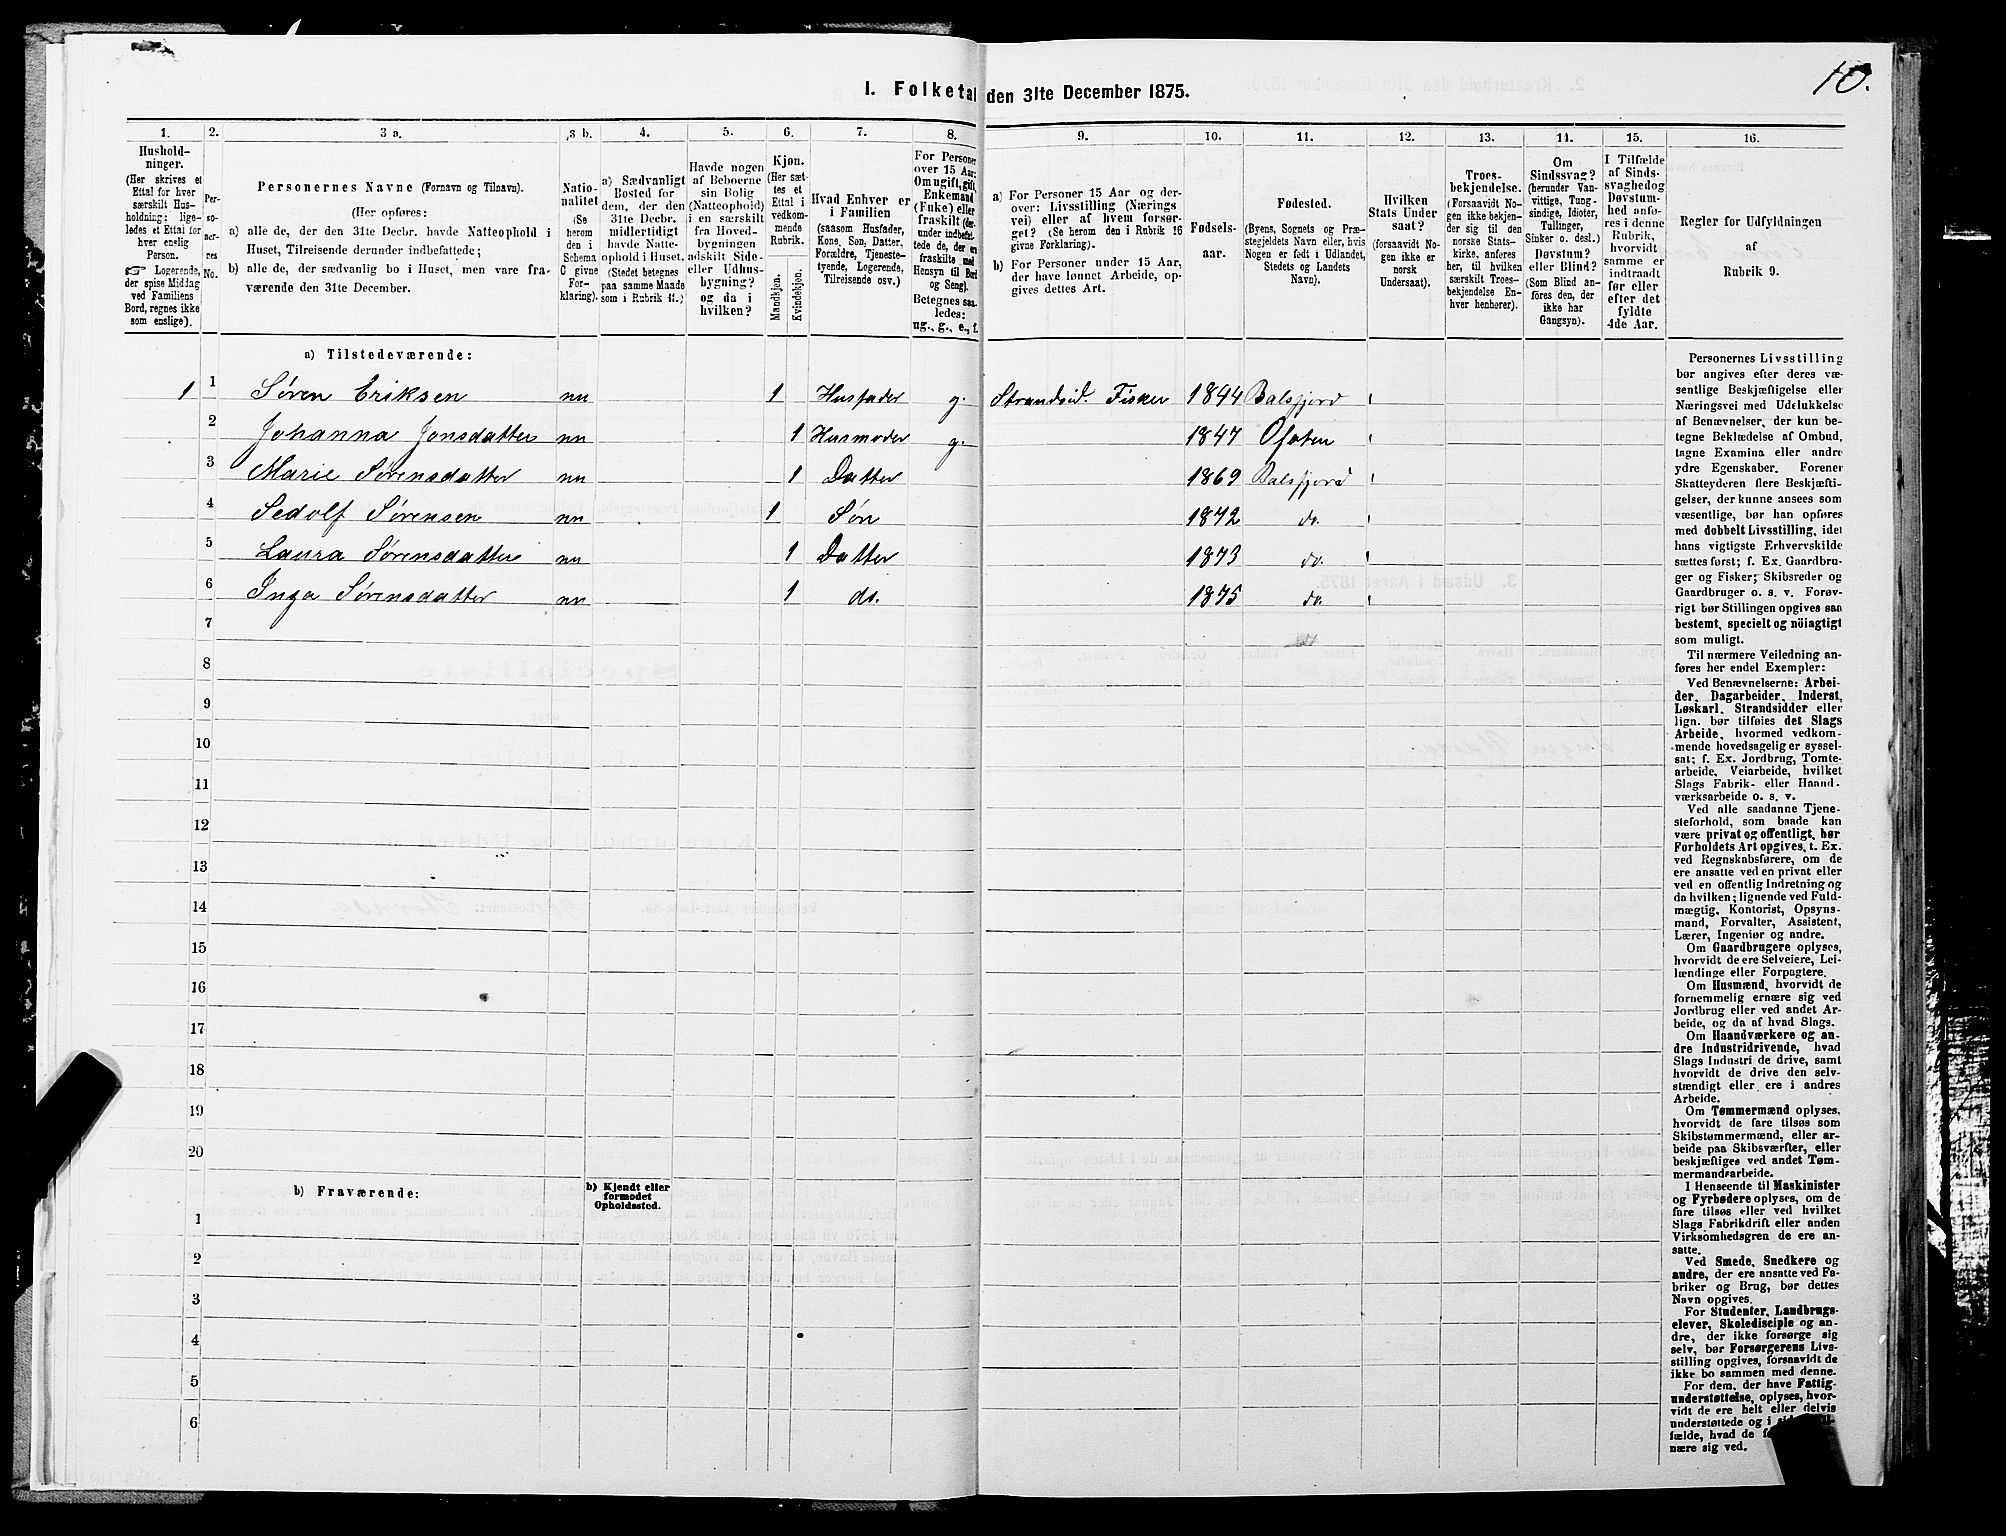 10.
I. Folketal den 31te December 1875.
1. 2. 3 a. 3 b. 4. 5. 6. 7. 8. 9. 10. 11. 12. 13. 14. 15. 16.
Husholdninger.
(Her skrives et
Ettal for hver
særskilt Husholdning;
ligeledes et Ettal for
hver enslig
Person.
☞ Logerende,
der spise Middag
ved Familiens
Bord, regnes ikke
som enslige).
Personernes No.
Personernes Navne (Fornavn og Tilnavn).
(Her opføres:
a) alle de, der den 31te Decbr. havde Natteophold i
Huset, Tilreisende derunder indbefattede;
b) alle de, der sædvanlig bo i Huset, men vare fraværende
den 31te December.
Nationalitet
(Se
herom
den i
Schema
C givne
Forklaring).
a) Sædvanligt
Bosted for
dem, der den
31te Decbr.
midlertidigt
havde Natteophold
i Huset.
(Stedet betegnes
paa samme Maade
som i Rubrik 11.)
Havde nogen
af Beboerne
sin Bolig
(Natteophold)
i en særskilt
fra Hovedbygningen
adskilt Side-
eller Udhusbygning?
og da i
hvilken?
Kjøn.
(Her sættes
et
Ettal i
vedkommende
Rubrik.
Mandkjøn.
Kvindekjøn.
Hvad Enhver er
i Familien
(saasom Husfader,
Kone, Søn, Datter,
Forældre, Tjenestetyende,
Logerende,
Tilreisende osv.)
For Personer
over 15 Aar:
Om ugift, gift,
Enkemand
(Enke) eller
fraskilt
Betegnes saaledes:
ug., g., e., f.
a) For Personer 15 Aar og derover:
Livsstilling (Næringsvei)
eller af hvem forsørget?
(Se herom den i Rubrik 16
givne Forklaring).
b) For Personer under 15 Aar,
der have lønnet Arbeide, opgives
dettes Art.
Fødselsaar.
Fødested.
(Byens, Sognets og Præstegjeldets
Navn eller, hvis
Nogen er født i Udlandet,
Stedets og Landets
Navn).
Hvilken
Stats Undersaat?
(forsaavidt Nogen
ikke er
norsk
Undersaat).
Troesbekjendelse.
(Forsaavidt Nogen
ikke bekjender
sig til den
norske Statskirke,
anføres
her, til hvilken
særskilt Troesbekjendelse
Enhver
henhører).
Om
Sindssvag?
(herunder Vanvittige,
Tungsindige,
Idioter,
Tullinger,
Sinker o. desl.)
Døvstum?
eller Blind?
(Som Blind anføres
den, der
ikke har
Gangsyn).
I Tilfælde
af Sindssvaghed
og
Døvstumhed
anføres
i denne
Rubrik,
hvorvidt
samme er
indtraadt
før eller
efter det
fyldte
4de Aar.
Regler for Udfyldningen
af
Rubrik 9.
a) Tilstedeværende:
1 1 Søren Eriksen nn 1 Husfader g. Strandsid. Fisker 1844 Balsfjord
2 Johanna Jonsdatter nn 1 Husmoder g. 1847 Ofoten
3 Marie Sørensdatter nn 1 Datter 1869 Balsfjord
4 Sedolf Sørensen nn 1 Søn 1872 do.
5 Laura Sørensdatter nn 1 Datter 1873 do.
6 Inga Sørensdatter nn 1 do. 1875 do.
7
8
9
10
11
12
13
14
15
16
17
18
19
20
b) Fraværende:
b) Kjendt eller
formodet
Opholdssted.
1
2
3
4
5
6
Personernes Livsstilling
bør angives efter deres væsentlige
Beskjæftigelse eller
Næringsvei med Udelukkelse
af Benævnelser, der kun betegne
Beklædelse af Ombud,
tagne Examina eller andre
ydre Egenskaber. Forener
Skatteyderen flere Beskjæftigelser,
der kunne ansees som
væsentlige, bør han opføres
med dobbelt Livsstilling, idet
hans vigtigste Erhvervskilde
sættes først; f. Ex. Gaardbruger
og Fisker; Skibsreder og
Gaardbruger o. s. v. Forøvrigt
bør Stillingen opgives saa
bestemt, specielt og nöiagtigt
som muligt.
Til nærmere Veiledning anføres
her endel Exempler:
Ved Benævnelserne: Arbeider,
Dagarbeider, Inderst,
Løskarl, Strandsidder eller
lign. bør tilføies det Slags
Arbeide, hvormed vedkommende
hovedsagelig er sysselsat;
f. Ex. Jordbrug, Tomtearbeide,
Veiarbeide, hvilket
Slags Fabrik- eller Haandværksarbeide
o. s. v.
Ved alle saadanne Tjenesteforhold,
som baade kan
være privat og offentligt, bør
Forholdets Art opgives, t. Ex.
ved Regnskabsførere, om de
ere ansatte ved en privat eller
ved en offentlig Indretning og
da hvilken; lignende ved Fuldmægtig,
Kontorist, Opsynsmand,
Forvalter, Assistent,
Lærer, Ingeniør og andre.
Om Gaardbrugere oplyses,
hvorvidt de ere Selveiere, Leilændinge
eller Forpagtere.
Om Husmænd, hvorvidt de
fornemmelig ernære sig ved
Jordbrug eller ved andet Arbeide,
og da af hvad Slags.
Om Haandværkere og andre
Industridrivende, hvad
Slags Industri de drive, samt
hvorvidt de drive den selvstændigt
eller ere i andres
Arbeide.
Om Tømmermænd oplyses,
hvorvidt de fare tilsøs som
Skibstømmermænd, eller arbeide
paa Skibsværfter, eller
beskjæftiges ved andet Tømmermandsarbeide.
I Henseende til Maskinister
og Fyrbødere oplyses, om de
fare tilsøs eller ved hvilket
Slags Fabrikdrift eller anden
Virksomhedsgren de ere ansatte.
Ved Smede, Snedkere og
andre, der ere ansatte ved Fabriker
og Brug, bør dettes
Navn opgives.
For Studenter, Landbrugselever,
Skoledisciple og andre,
der ikke forsørge sig
selv, bør Forsørgerens Livsstilling
opgives, forsaavidt de
ikke bo sammen med denne.
For dem, der have Fattigunderstøttelse,
oplyses, hvorvidt
de ere helt eller delvis
understøttede og i
fælde, hvad de
nære sig ved.